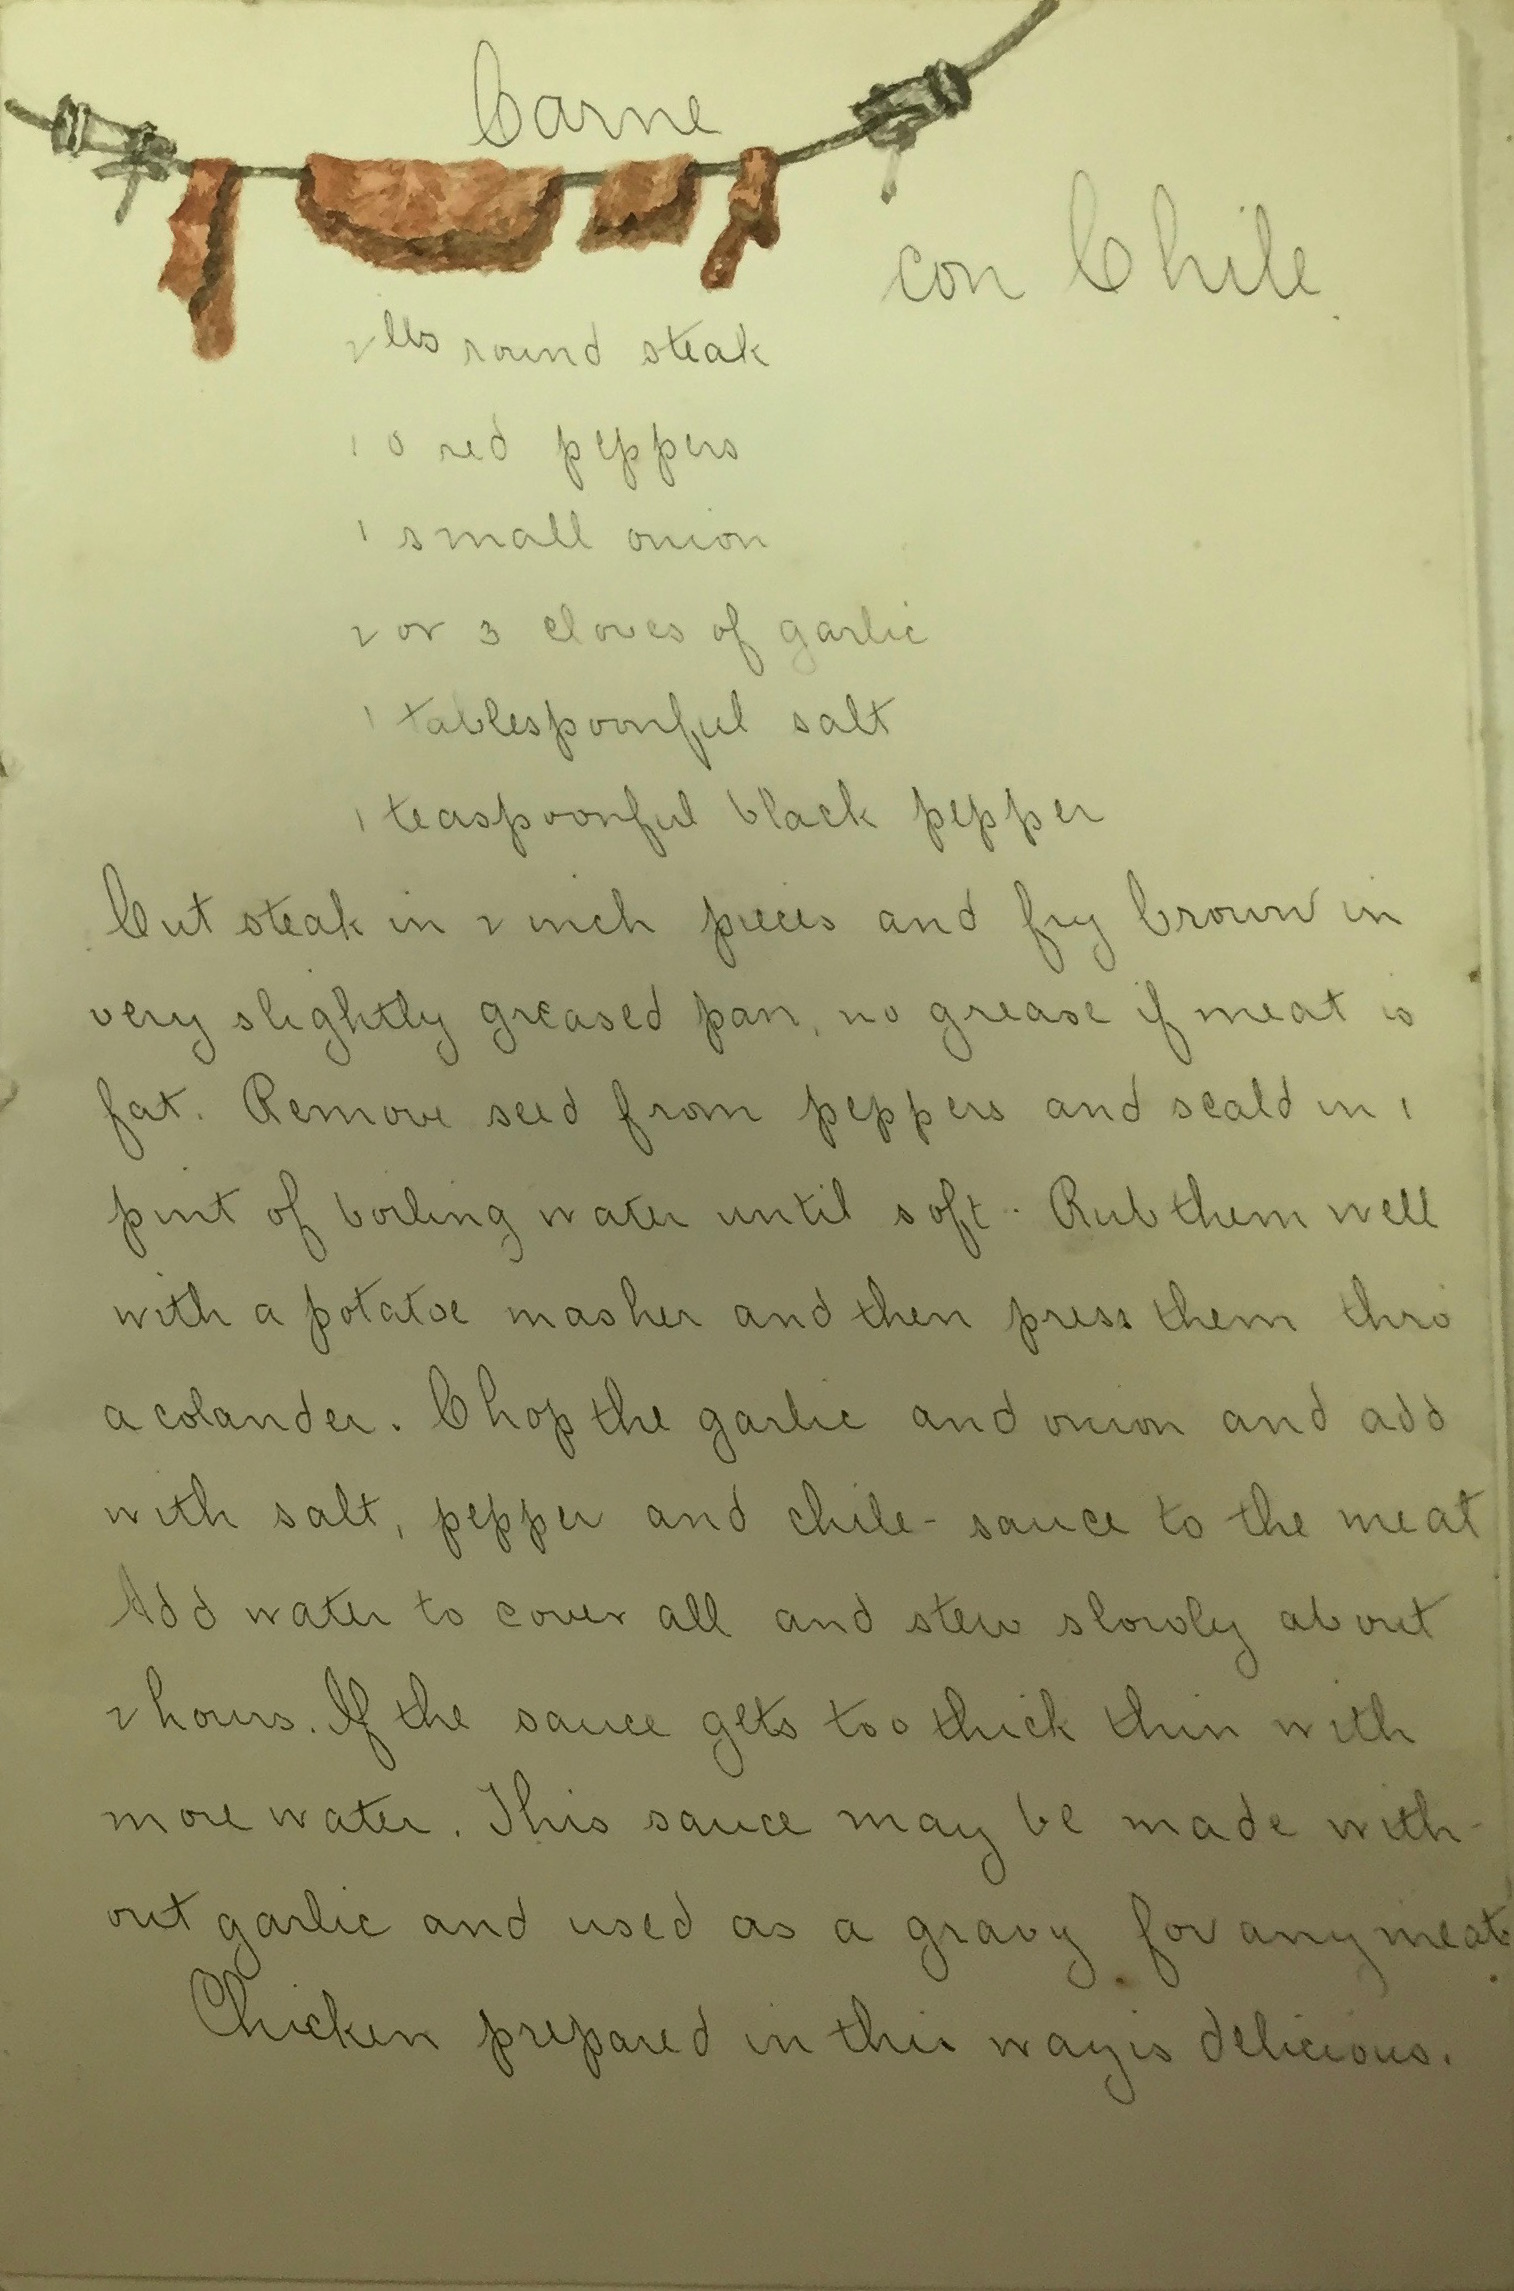 Carne
con Chile.
2 lbs round steak
10 red peppers
1 small onion
2 or 3 cloves of garlic
1 tablespoonful salt
1 teaspoonful black pepper
Cut steak in 2 inch pieces and fry brown in
very slightly greased pan, no grease if meat is
fat. Remove seed from peppers and scald in 1
pint of boiling water until soft. Rub them well
with a potatoe masher and then press them thro
a colander. Chop the garlic and onion and add
with salt, pepper and chile-sauce to the meat
Add water to cover all and stew slowly about
2 hours. If the sauce gets too thick thin with
more water. This sauce may be made with-
out garlic and used as a gravy for any meat.
Chicken prepared in this way is delicious.